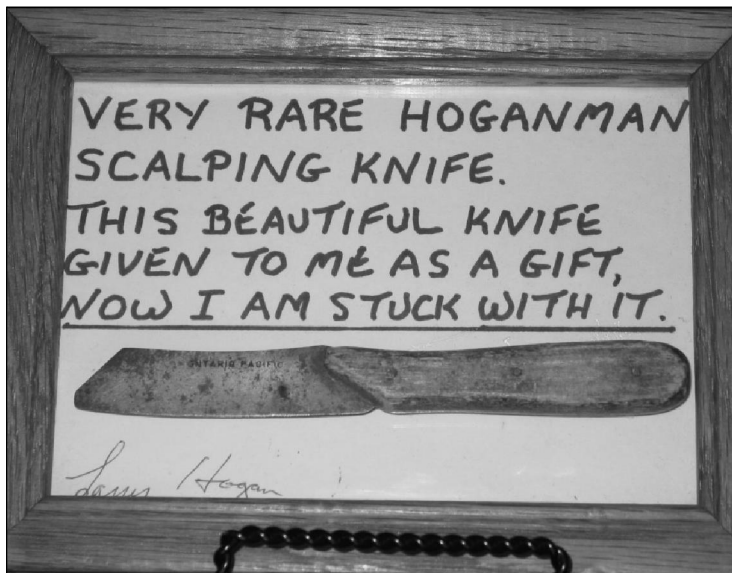 VERY RARE HOGANMAN
SCALPING KNIFE.
THIS BEAUTIFUL KNIFE
GIVEN TO ME AS A GIFT,
NOW I AM STUCK WITH IT.
ONTARIO PACIFIC
Hogan